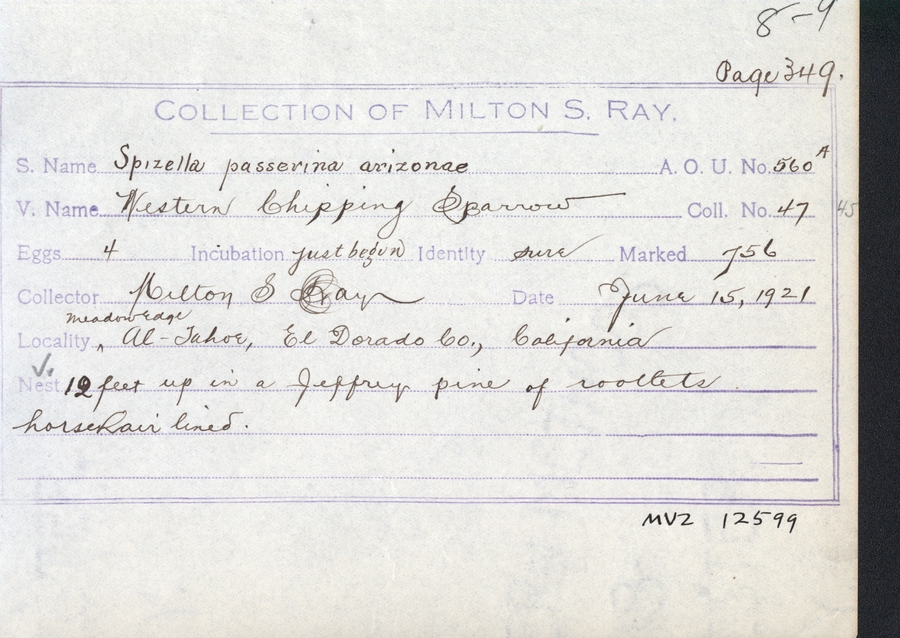 8-9
Page 349.
COLLECTION OF MILTON S. RAY.
S. Name Spizella passerina arizonae A. O. U. No. 560A
V. Name Western Chipping Sparrow Coll. No. 47 45
Eggs 4 Incubation just begun Identity sure Marked 756
Collector Milton S Ray Date June 15, 1921
meadow edge
Locality ‸ Al-Tahoe, El Dorado Co., California
Nest 12 feet up in a Jeffrey pine of rootlets
horsehair lined.
MVZ 12599